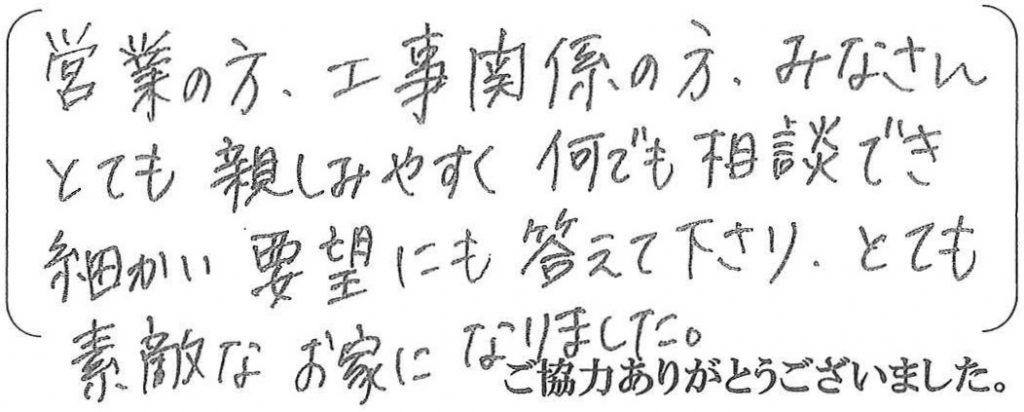 営業の方、工事関係の方、みなさん
とても親しみやすく何でも相談でき
細かい要望にも答えて下さり、とても
素敵なお家になりました。
ご協力ありがとうございました。